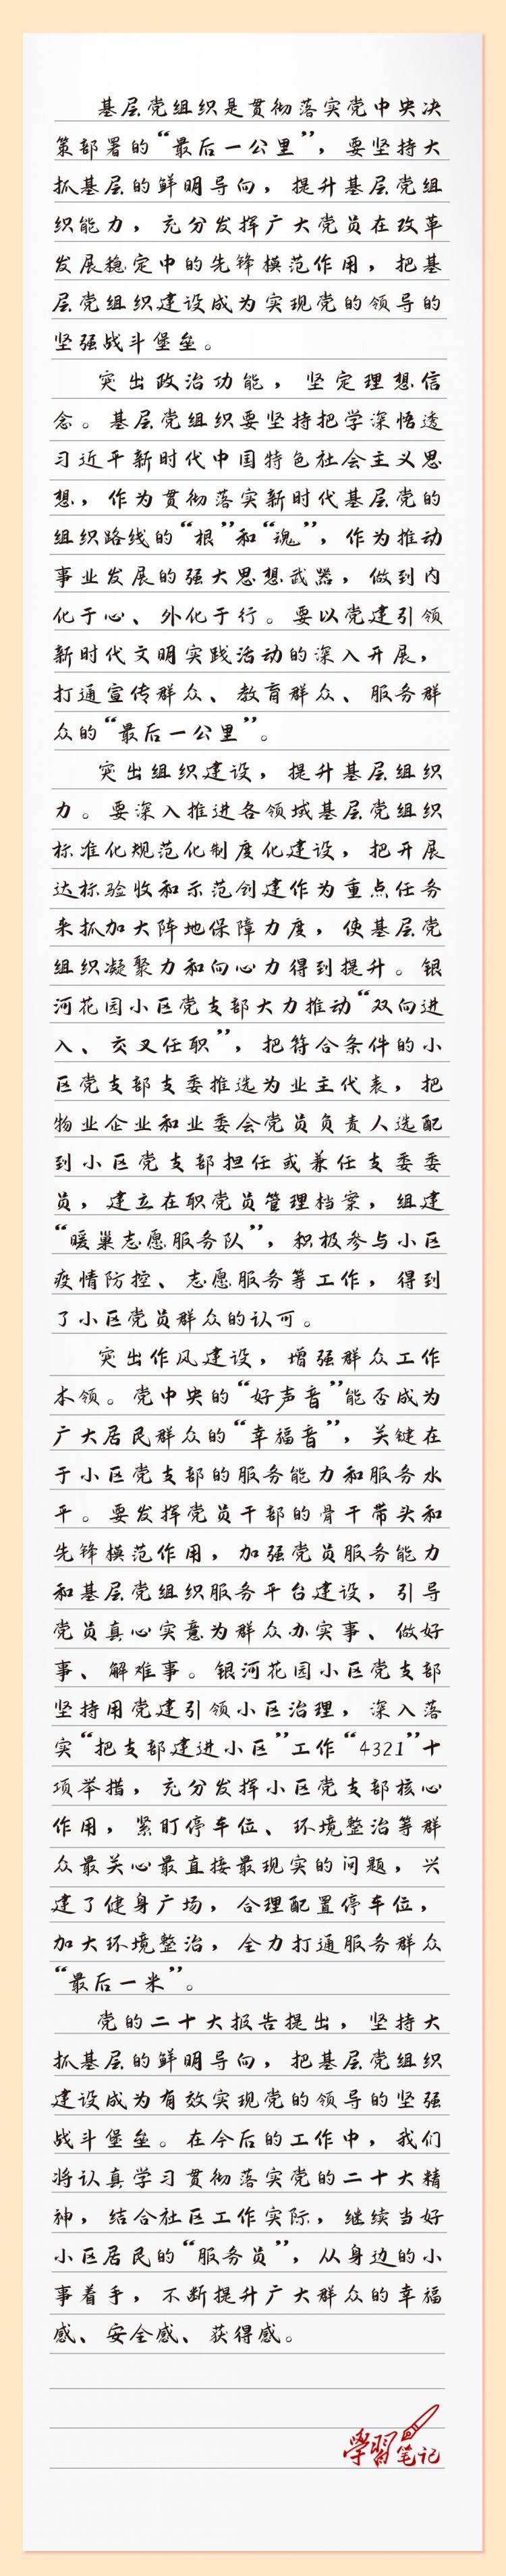 基层党组织是贯彻落实党中央决
策部署的“最后一公里”，要坚持大
抓基层的鲜明导向，提升基层党组
织能力，充分发挥广大党员在改革
发展稳定中的先锋模范作用，把基
层党组织建设成为实现党的领导的
坚强战斗堡垒。
突出政治功能，坚定理想信
念。基层党组织要坚持把学深悟透
习近平新时代中国特色社会主义思
想，作为贯彻落实新时代基层党的
组织路线的“根”和“魂”，作为推动
事业发展的强大思想武器，做到内
化于心、外化于行。要以党建引领
新时代文明实践活动的深入开展，
打通宣传群众、教育群众、服务群
众的“最后一公里”。
突出组织建设，提升基层组织
力。要深入推进各领域基层党组织
标准化规范化制度化建设，把开展
达标验收和示范创建作为重点任务
来抓加大阵地保障力度，使基层党
组织凝聚力和向心力得到提升。银
河花园小区党支部大力推动“双向进
入、交叉任职”，把符合条件的小
区党支部支委推选为业主代表，把
物业企业和业委会党员负责人选配
到小区党支部担任或兼任支委委
员，建立在职党员管理档案，组建
“暖巢志愿服务队”，积极参与小区
疫情防控、志愿服务等工作，得到
了小区党员群众的认可。
突出作风建设，增强群众工作
本领。党中央的“好声音”能否成为
广大居民群众的“幸福音”，关键在
于小区党支部的服务能力和服务水
平。要发挥党员干部的骨干带头和
先锋模范作用，加强党员服务能力
和基层党组织服务平台建设，引导
党员真心实意为群众办实事、做好
事、解难事。银河花园小区党支部
坚持用党建引领小区治理，深入落
实“把支部建进小区”工作“4321”十
项举措，充分发挥小区党支部核心
作用，紧盯停车位、环境整治等群
众最关心最直接最现实的问题，兴
建了健身广场，合理配置停车位，
加大环境整治，全力打通服务群众
“最后一米”。
党的二十大报告提出，坚持大
抓基层的鲜明导向，把基层党组织
建设成为有效实现党的领导的坚强
战斗堡垒。在今后的工作中，我们
将认真学习贯彻落实党的二十大精
神，结合社区工作实际，继续当好
小区居民的“服务员”，从身边的小
事着手，不断提升广大群众的幸福
感、安全感、获得感。
學習笔记